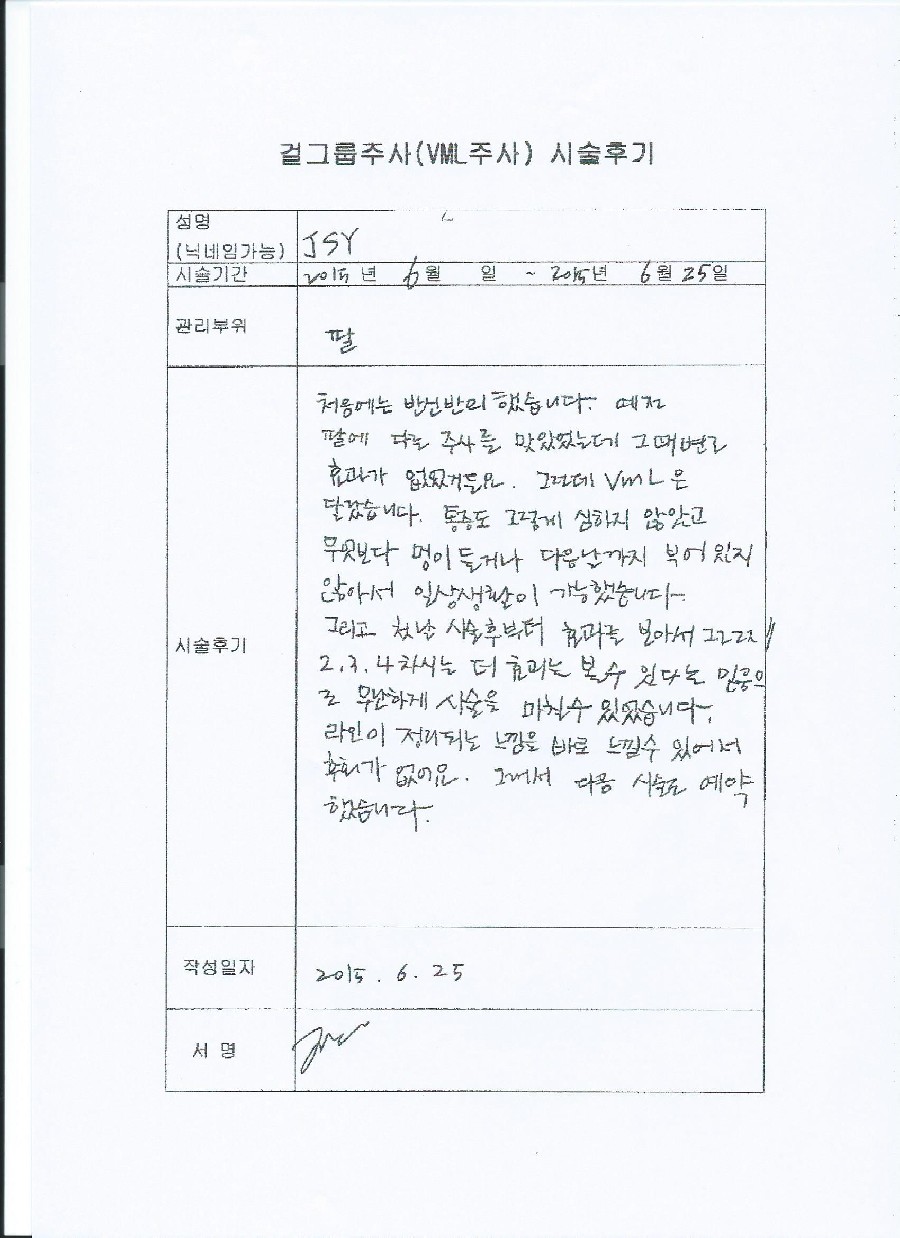 걸그룹주사(VML주사) 시술후기
성명
(닉네임가능) JSY
시술기간 2015년 6월 일 ~ 2015년 6월 25일
관리부위 팔
처음에는 반신반의 했습니다. 예전
팔에 다른 주사를 맞았었는데 그때 별로
효과가 없었거든요. 그런데 VML은
달랐습니다. 통증도 그렇게 심하지 않았고
무엇보다 멍이 들거나 다음날까지 부어 있지
않아서 일상생활이 가능했습니다.
그리고 첫날 시술후부터 효과를 보아서 그런지
시술후기
2, 3, 4차시는 더 효과는 볼 수 있다는 믿음으
로 무난하게 시술을 마칠수 있었습니다.
라인이 정리되는 느낌을 바로 느낄수 있어서
후회가 없어요. 그래서 다음 시술도 예약
했습니다.
작성일자 2015. 6. 25
서 명